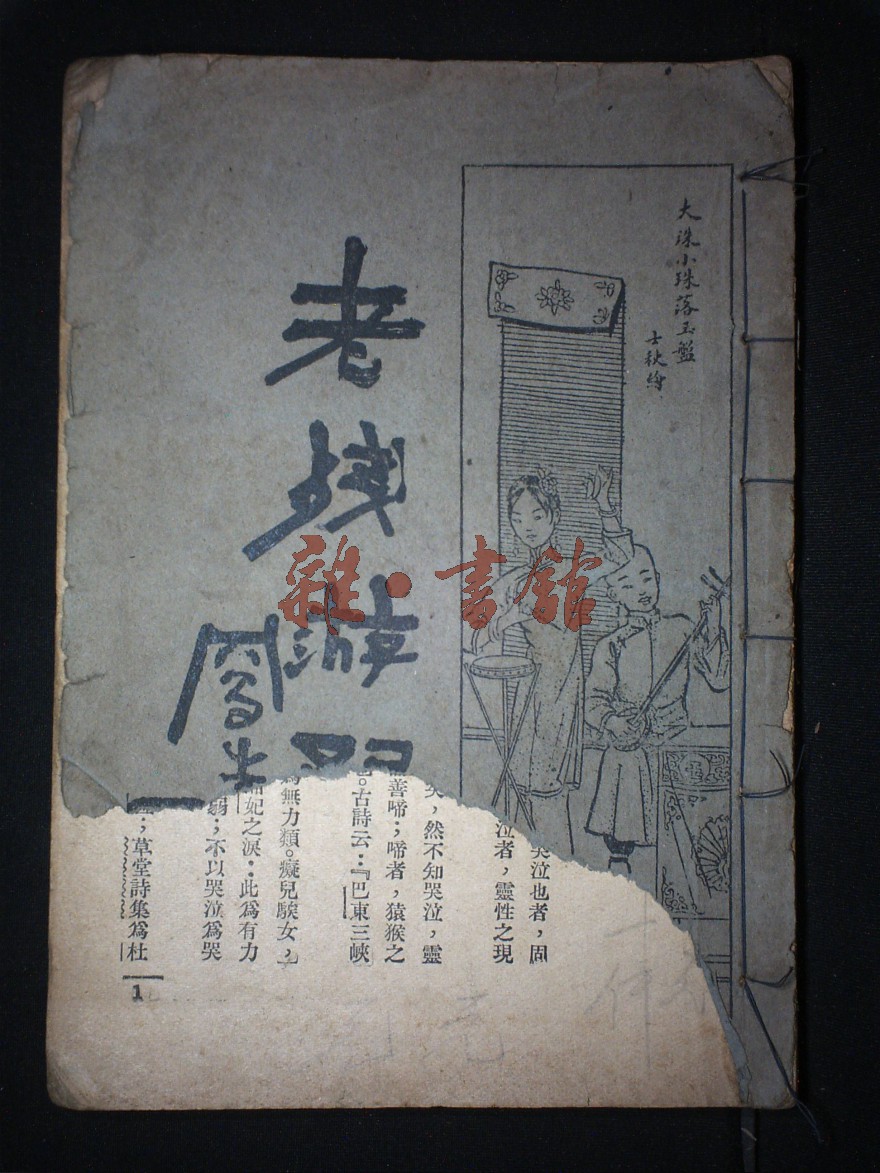 大珠小珠落玉盤
士秋繪
老残游
雜·書舘
哭泣也者，固
泣者，靈性之現
矣，然不知哭泣，靈
善啼；啼者，猿猴之
。古詩云：『巴東三峽
爲無力類。癡兒騃女，
妃之淚：此爲有力
；不以哭泣爲哭
；草堂詩集爲杜
1